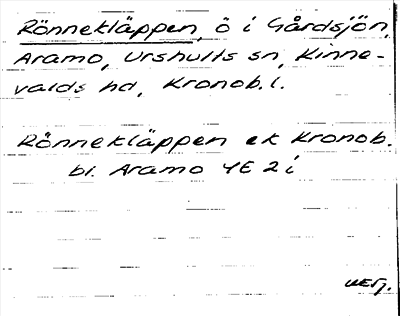 Rönnekläppen, ö i Gårdsjön,
Aramo, Urshults sn, Kinne-
valds hd, Kronob. l.
Rönnekläppen ek Kronob.
bl. Aramo 4E 2 i